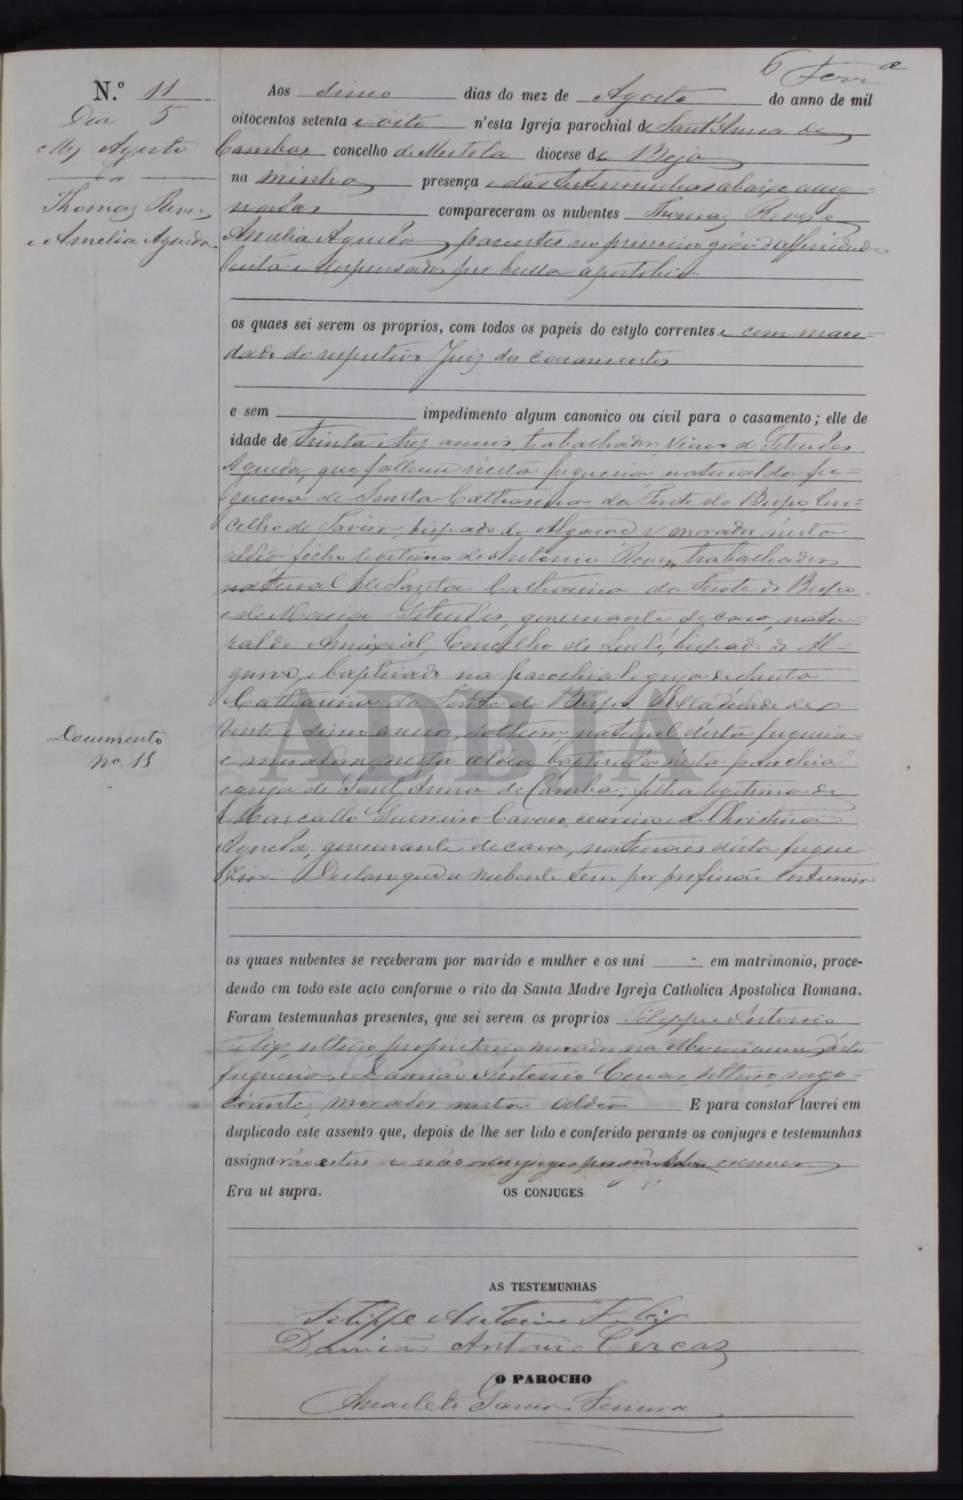 6
N.º 11
Dia 5
Agosto
Thomaz
e Amelia Agueda
Documento
nº 11
Aos sinco dias do mez de Agosto do anno de mil
oitocentos setenta e oito n'esta Igreja parochial de Sant'Anna de
Cambas concelho de Mertola diocese de Beja
na minha presença e das testemunhas abaixo assig-
nadas compareceram os nubentes Thomaz e
Amelia Agueda, parentes no primeiro gráo d'affinidade
licita e dispensados por bulla apostolica
os quaes sei serem os proprios, com todos os papeis do estylo correntes e com man-
dado do respectivo Juiz dos casamentos
e sem impedimento algum canonico ou civil para o casamento; elle de
idade de trinta e tres annos, trabalhador, viuvo de Getrudes
Agueda, que falleceu nesta freguesia natural da fre-
guesia de Santa Catharina da Fonte do Bispo, Con-
celho de Tavira, bispado do Algarve e morador nesta
aldeia filho legitimo de Antonio trabalhador,
natural de Santa Catharina da Fonte do Bispo
e de Maria Getrudes, governante de casa, natu-
ral do Ameixial, Concelho de Loulé, bispado do Al-
garve, e baptisado na parochial Igreja de Santa
Catharina da Fonte do Bispo. Ella d'idade de
vinte e sinco annos, solteira, natural d'esta freguesia
e moradora nesta aldeia baptisada nesta parochial
egreja de Sant'Anna de Cambas, filha legitima de
Marcallo Guerreiro e de Christina
Agueda, governante de casa, naturaes d'esta fregue
sia. Declaro que a nubente tem por profissão costureira
os quaes nubentes se receberam por marido e mulher e os uni em matrimonio, proce-
dendo em todo este acto conforme o rito da Santa Madre Igreja Catholica Apostolica Romana.
Foram testemunhas presentes, que sei serem os proprios Filippe Antonio
solteiro, proprietario morador na d'esta
freguesia, e Damião Antonio Cercas, solteiro, nego-
ciante, morador nesta aldeia E para constar lavrei em
duplicado este assento que, depois de lhe ser lido e conferido perante os conjuges e testemunhas
assignarão estas e não os conjuges por não saberem escrever
Era ut supra. OS CONJUGES
AS TESTEMUNHAS
Filippe Antonio
Damião Antonio Cercas
O PAROCHO
Anacleto Ferreira
ADBJA